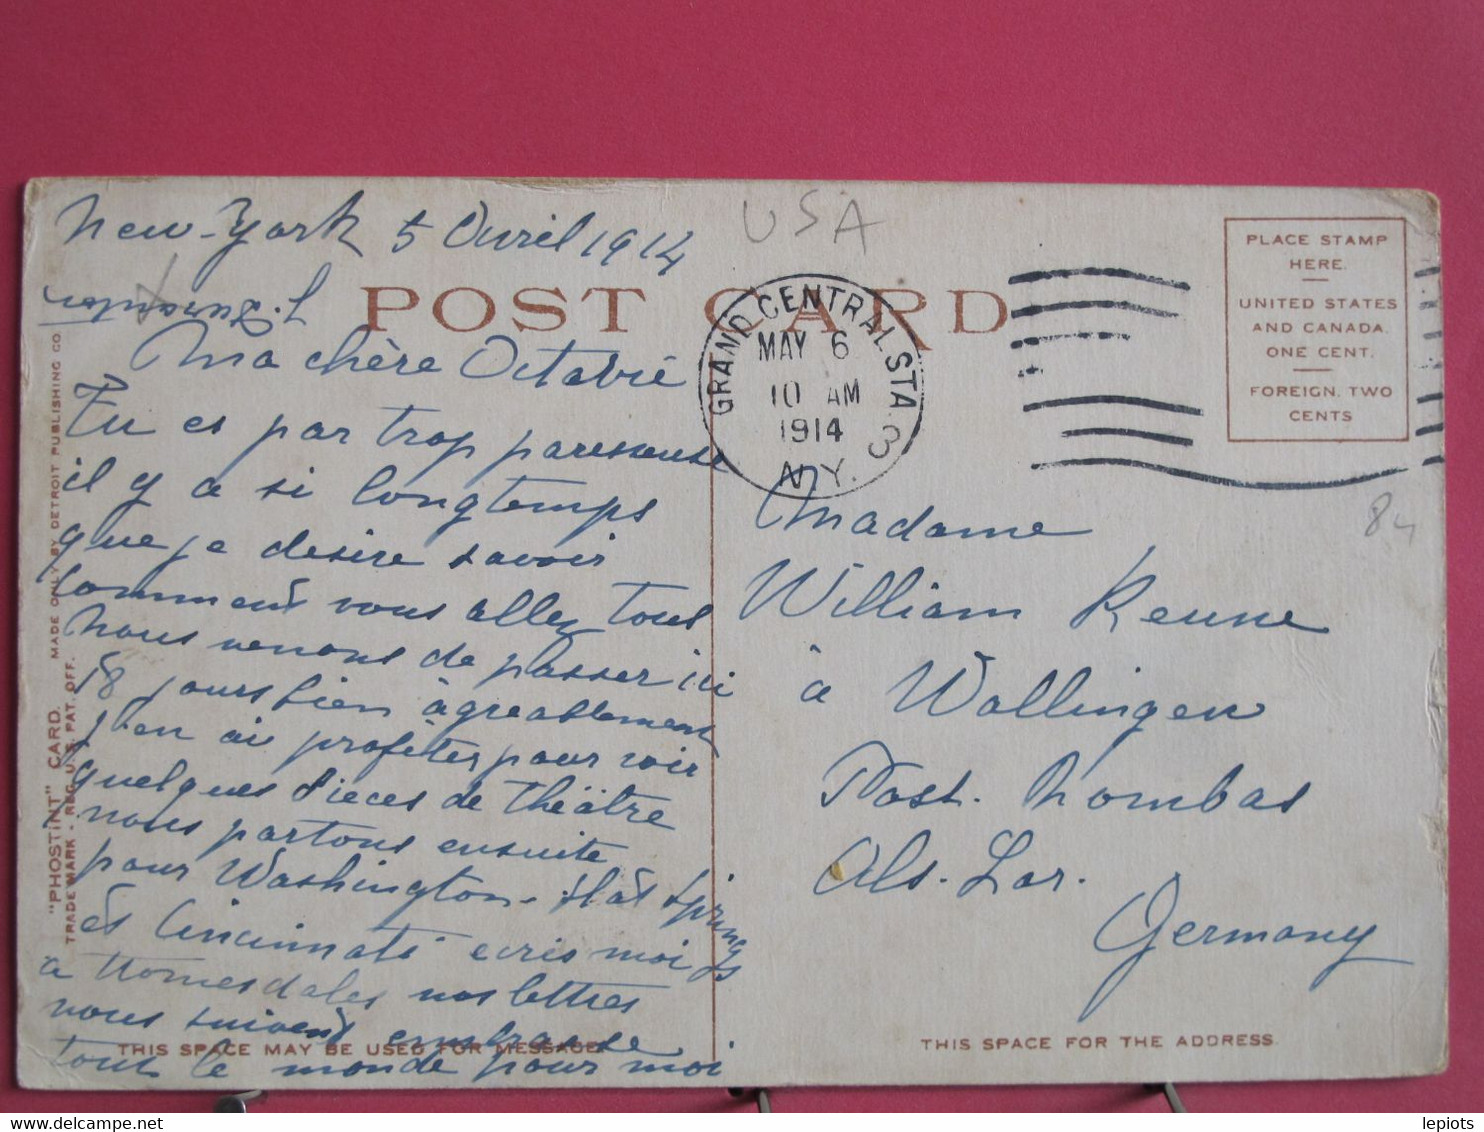 New-York 5 Avril 1914
USA
POST CARD
Ma chère Octavie
Tu es par trop paresseuse
il y a si longtemps
que je desire savoir
comment vous allez tous
nous venons de passer ici
18 jours bien àgreablement
j'en ai profiter pour voir
quelques Pieces de théâtre
nous partons ensuite
pour Washington - Hot Springs
et Cincinnati ecris moi
a nos lettres
nous suivent embrasse
tout le monde pour moi
THIS SPACE MAY BE USED FOR MESSAGE
"PHOSTINT" CARD. MADE ONLY BY DETROIT PUBLISHING CO.
TRADE MARK - REG. U.S. PAT. OFF.
GRAND CENTRAL STA. 3
MAY 6
10 AM
1914
N.Y.
PLACE STAMP
HERE.
UNITED STATES
AND CANADA.
ONE CENT.
FOREIGN. TWO
CENTS
84
Madame
William Renne
à Wallingen
Post. Rombas
Als. Lor.
Germany
THIS SPACE FOR THE ADDRESS.
lepiots
delcampe.net